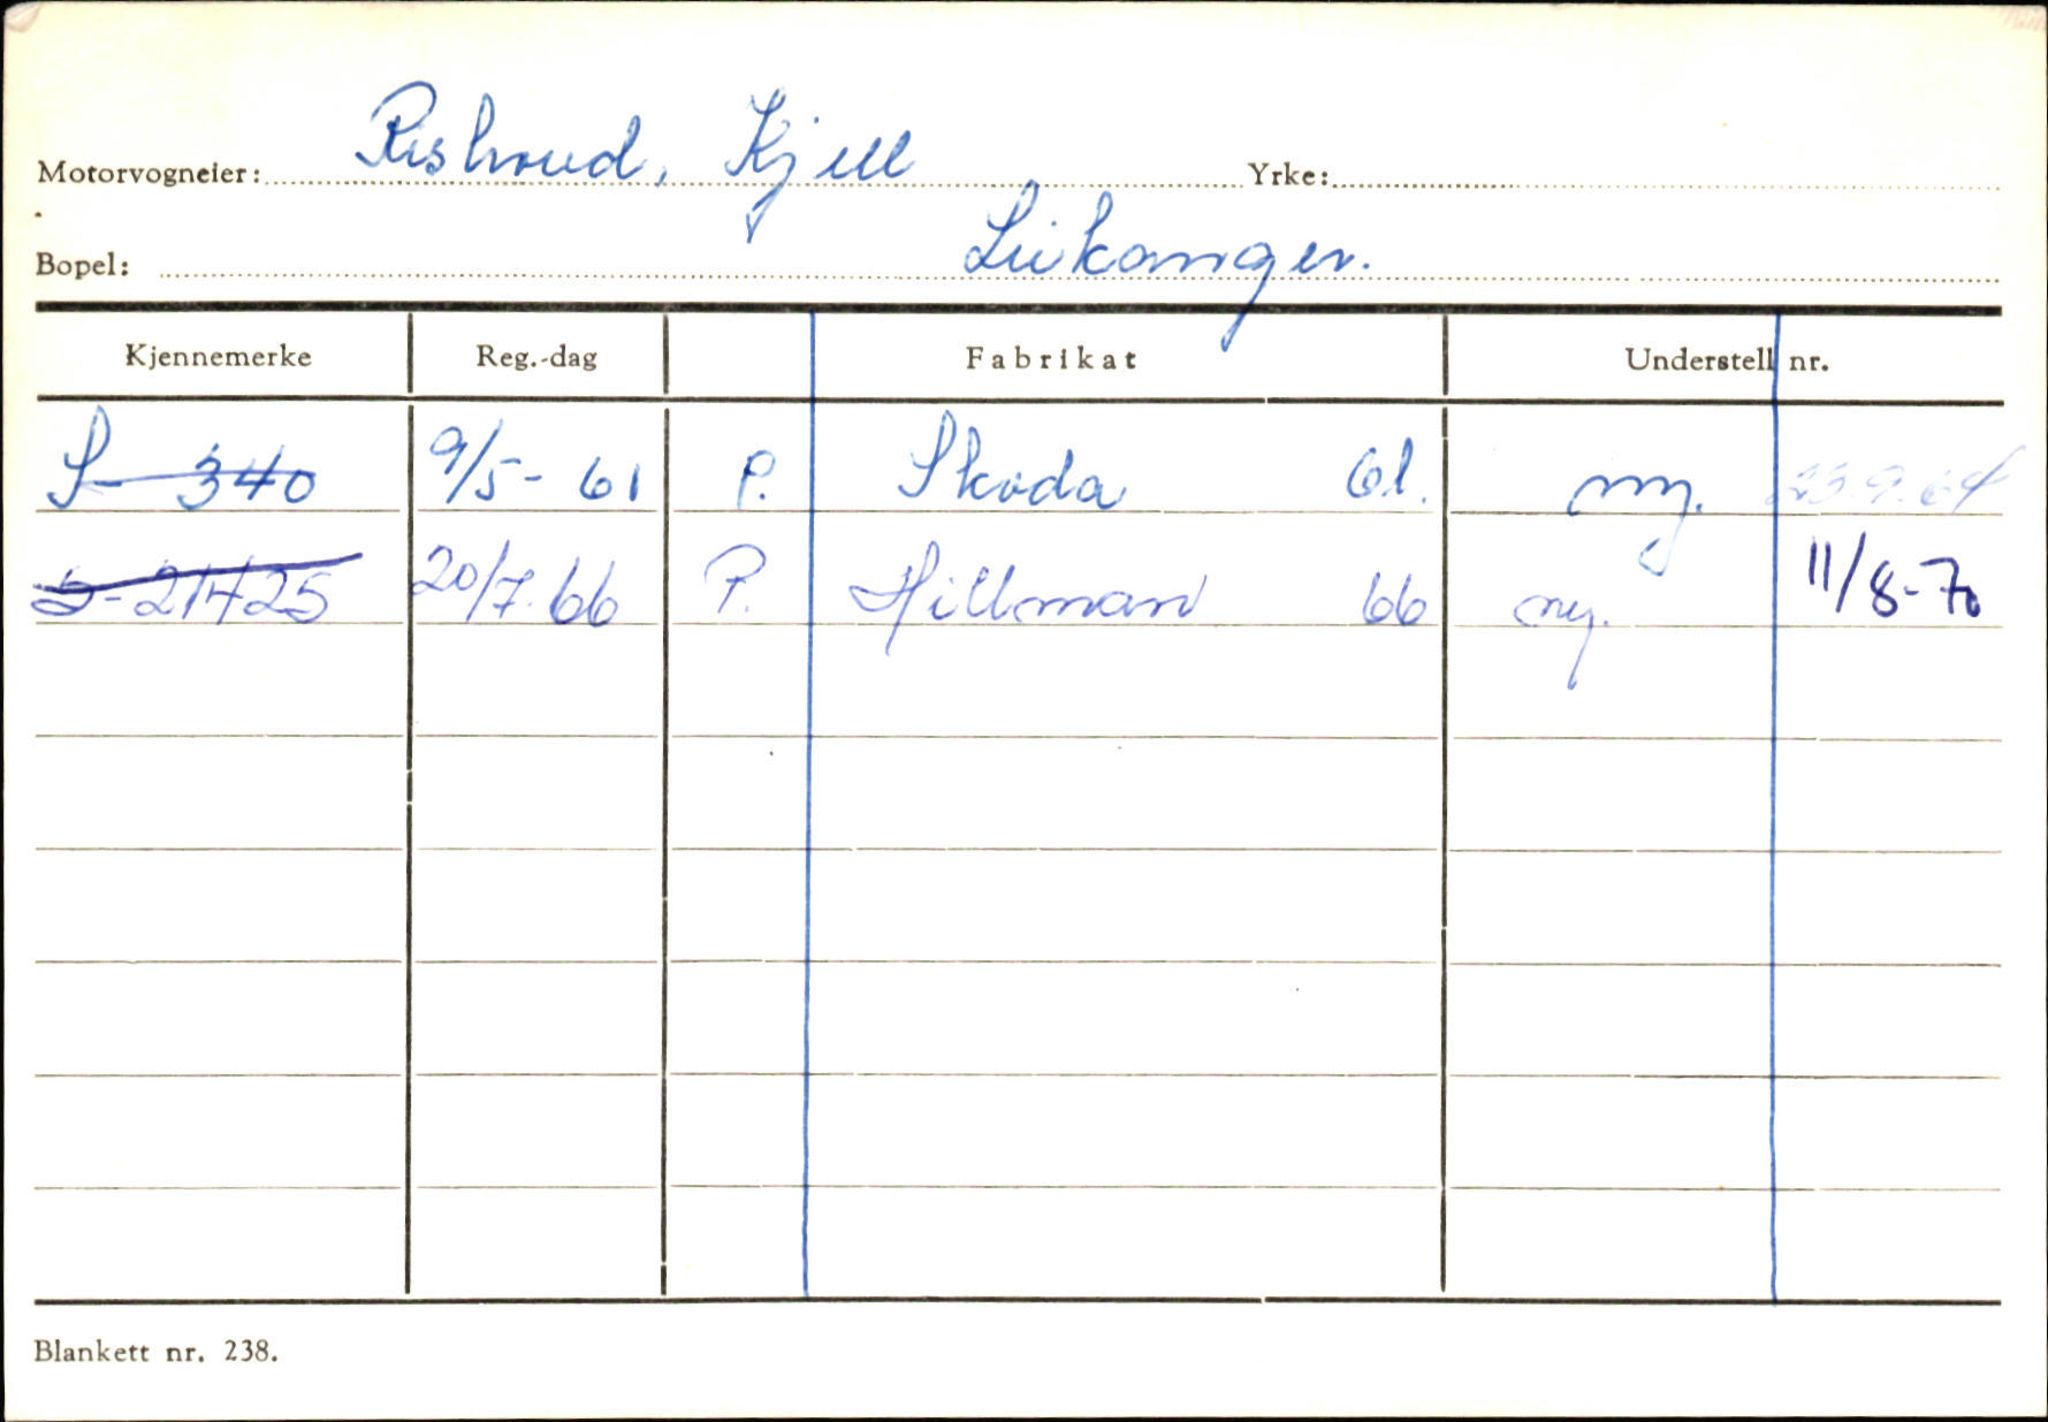 Motorvogneier: Rishovd, Kjell Yrke:
Bopel: Leikanger.
Kjennemerke Reg.-dag Fabrikat Understell nr.
S- 340 9/5- 61 P. Skoda 61. ny. 23.9.64
S-21425 20/7.66 P. Hillman 66 ny. 11/8-70
Blankett nr. 238.